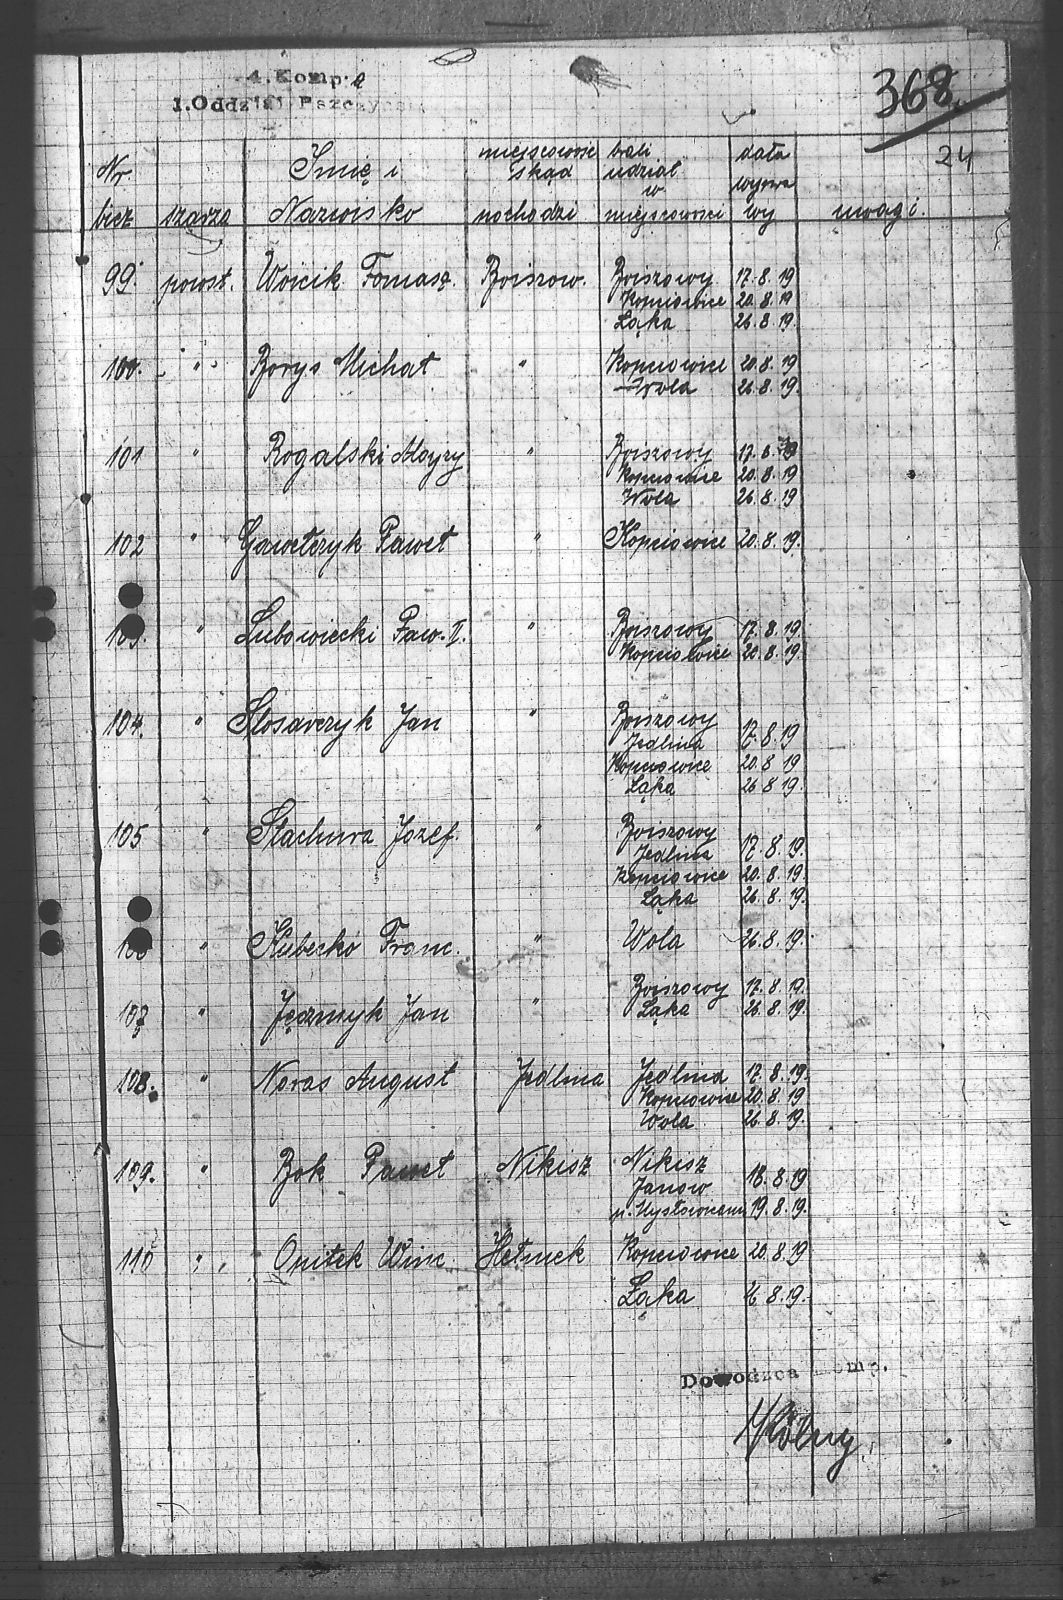 4. Komp.
I. Oddział Pszczyń
368.
24
Nr. bież szarża Imię i Nazwisko miejscowość skąd pochodzi brali udział w miejscowości data wypra wy uwagi.
99. powst. Wojcik Tomasz. Bojszow. Bojszowy 17.8.19
Kopciowice 20.8.19
Łąka 26.8.19.
100. " Borys Michał " Kopciowice 20.8.19
Wola 26.8.19.
101 " Rogalski Alojzy " Bojszowy 17.8.19
Kopciowice 20.8.19
Wola 26.8.19
102 " Gawełczyk Paweł " Kopciowice 20.8.19.
103. " Lubowiecki Paw. II. " Bojszowy 17.8.19.
Kopciowice 20.8.19.
104. " Slosarczyk Jan " Bojszowy
Jedlina 17.8.19
Kopciowice 20.8.19
Łąka 26.8.19.
105 " Stachura Jozef. " Bojszowy
Jedlina 17.8.19.
Kopciowice 20.8.19.
Łąka 26.8.19.
106 " Franc. " Wola 26.8.19.
107 " Jan " Bojszowy 17.8.19.
Łąka 26.8.19.
108. " Noras August Jedlina Jedlina 17.8.19.
Kopciowice 20.8.19
Wola 26.8.19.
109. " Bok Paweł Nikisz Nikisz
Janow 18.8.19
p. Mysłowicami 19.8.19.
110 " Opitek Winc. Kopciowice 20.8.19
Łąka 26.8.19.
Dowodzca Komp.